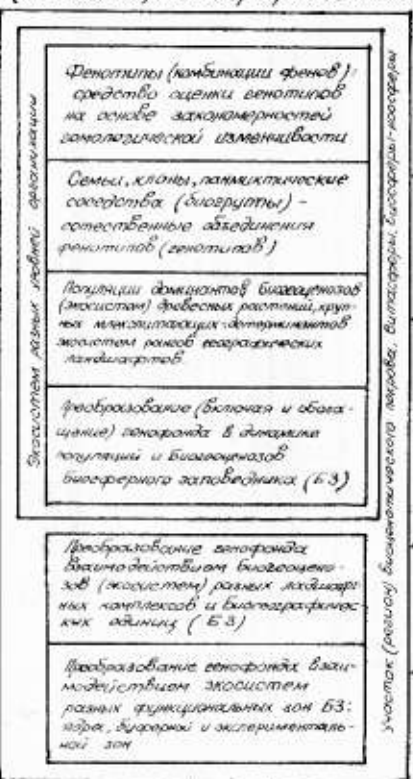 Экосистем разных уровней организации
Фенотипы (комбинации фенов) -
средство оценки генотипов
на основе закономерностей
гомологической изменчивости
Семьи, кланы, панмиктические
соседства (биогруппы) -
естественные объединения
фенотипов (генотипов)
Популяции доминантов биогеоценозов
(экосистем) древесных растений, круп-
ных млекопитающих - детерминантов
экосистем рангов географических
ландшафтов
Преобразование (включая и обога-
щение) генофонда в динамике
популяций и биогеоценозов
Биосферного заповедника (БЗ)
Преобразование генофонда
взаимодействием биогеоцено-
зов (экосистем) разных ландшафт-
ных комплексов и биогеографичес-
ких единиц (БЗ)
Преобразование генофонда взаи-
модействием экосистем
разных функциональных зон БЗ:
ядра, буферной и эксперименталь-
ной зон
участок (регион) биоценотического покрова, витасферы, биосферы-ноосферы